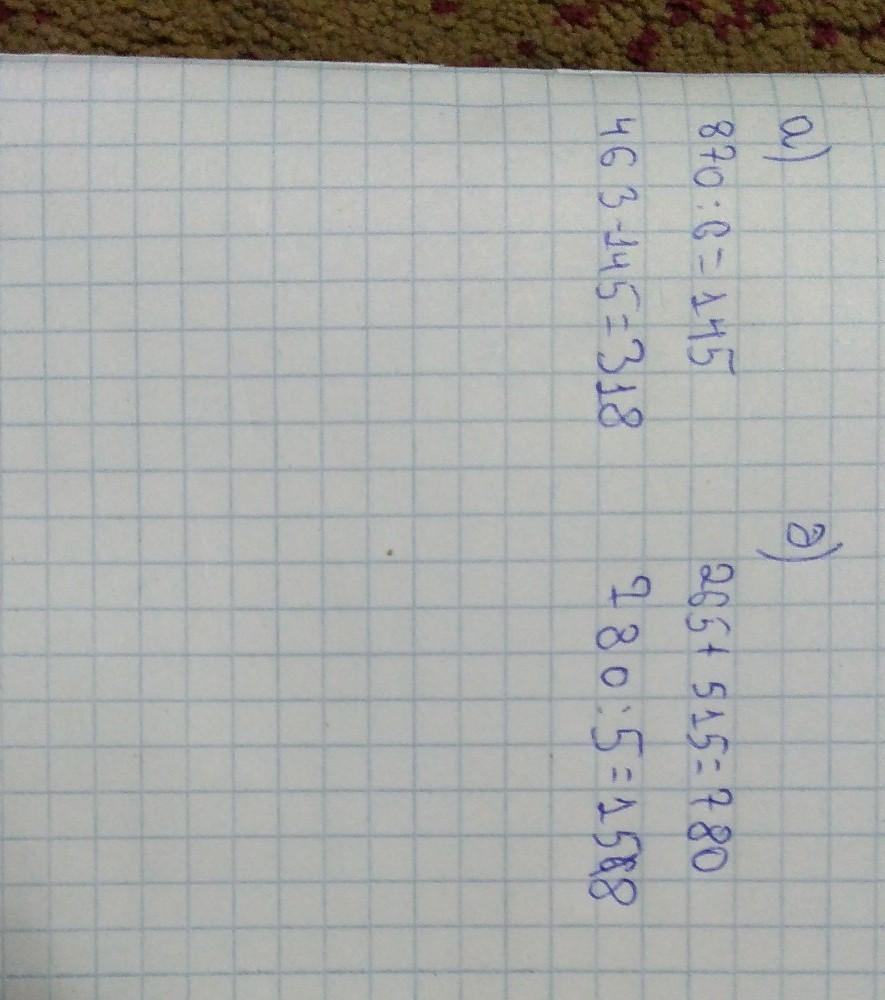 а)
870:6=145
463-145=318
д)
265+515=780
780:5=158